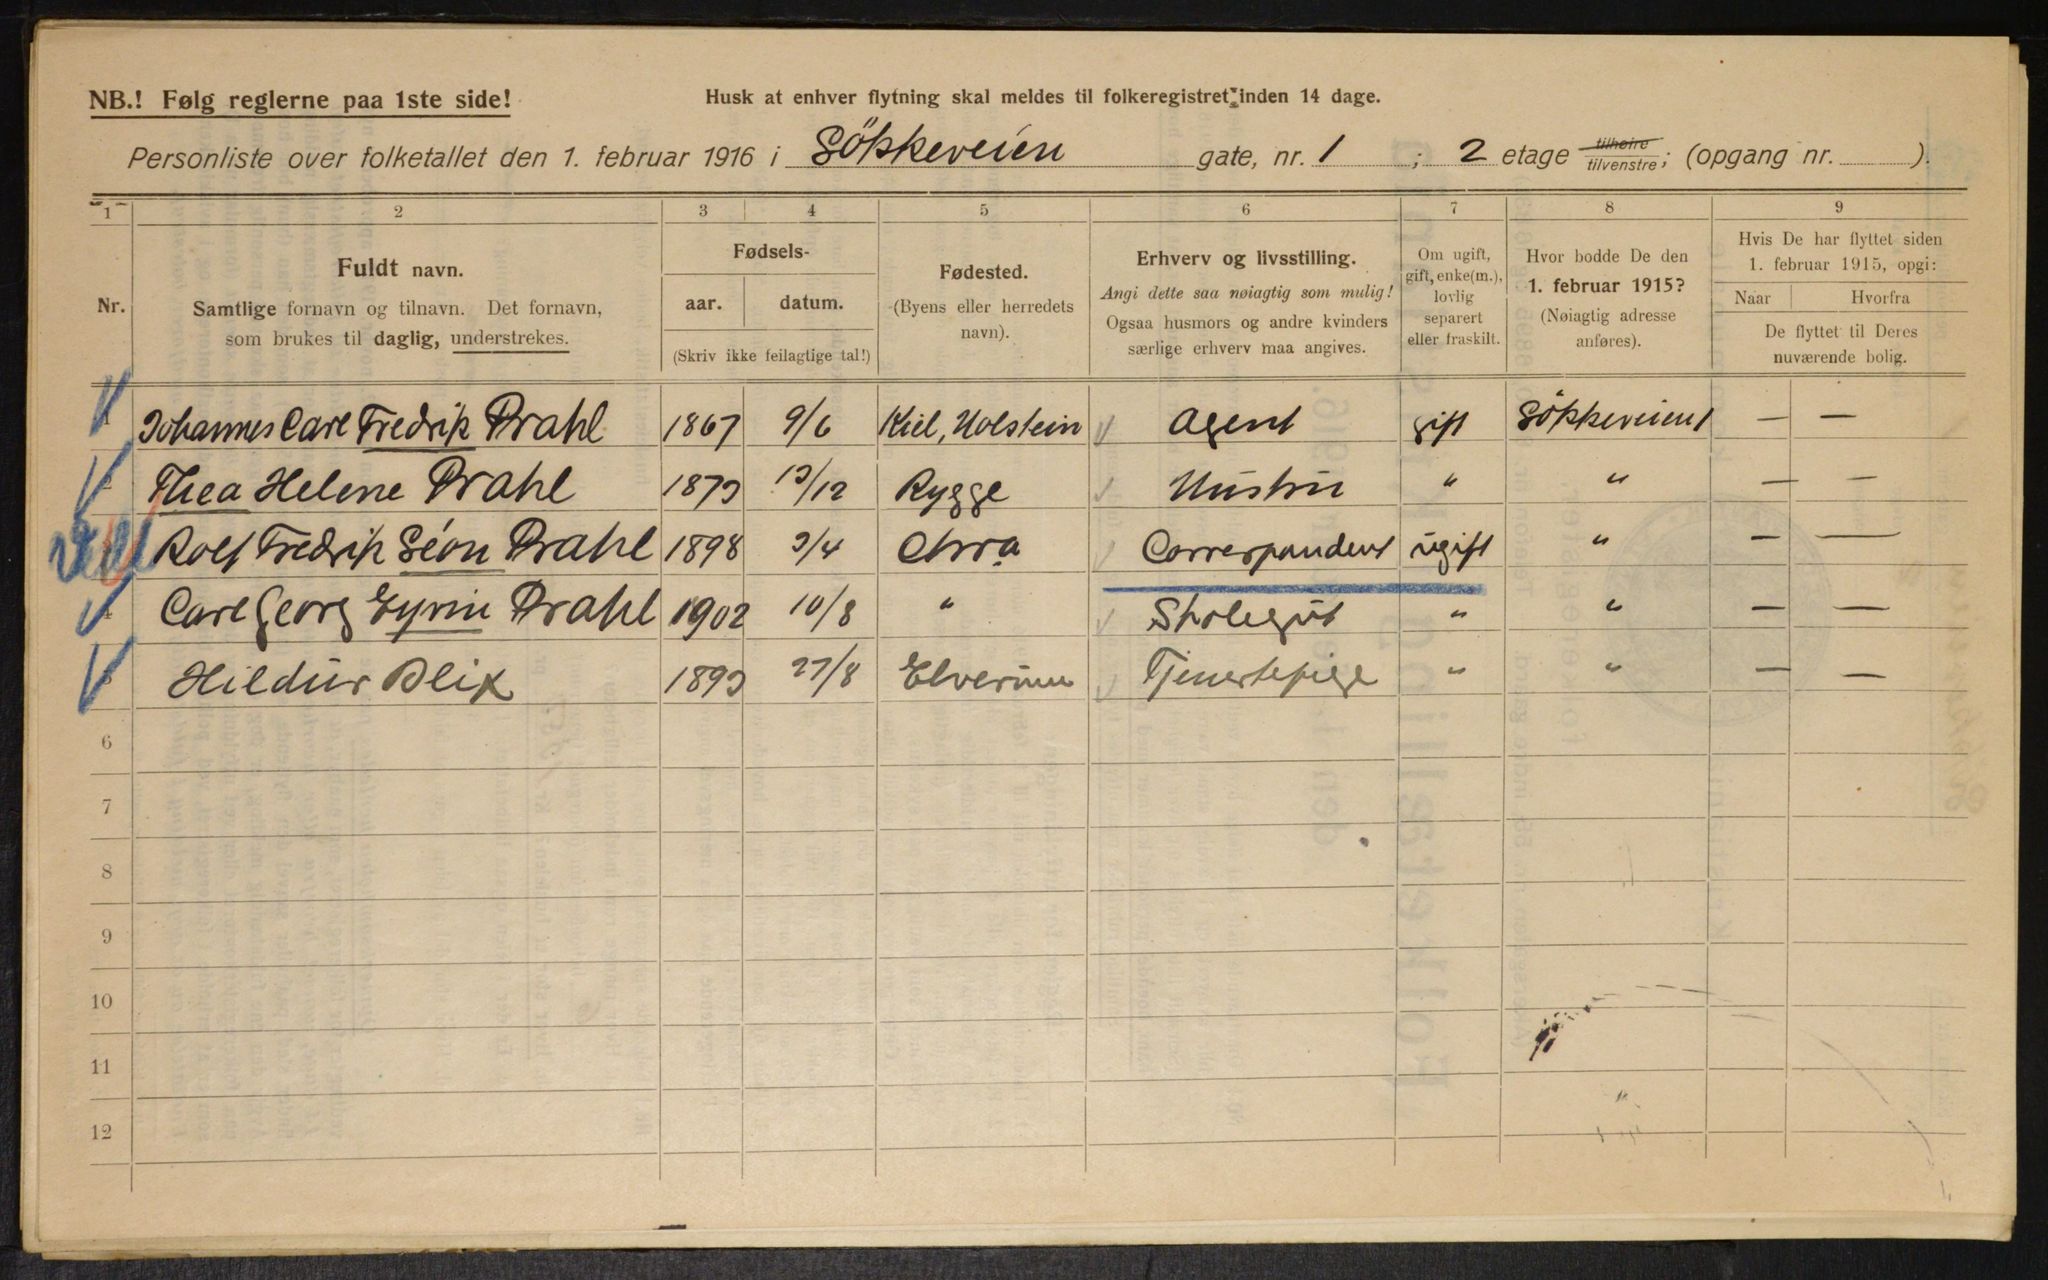 NB.! Følg reglerne paa 1ste side!
Husk at enhver flytning skal meldes til folkeregistret inden 14 dage.
Personliste over folketallet den 1. februar 1916 i Sökkeveien gate, nr. 1 ; 2 etage tilhøire/tilvenstre; (opgang nr. ).
1 2 3 4 5 6 7 8 9
Nr.
Fuldt navn.
Samtlige fornavn og tilnavn. Det fornavn,
som brukes til daglig, understrekes.
Fødsels-
aar. datum.
(Skriv ikke feilagtige tal!)
Fødested.
(Byens eller herredets
navn).
Erhverv og livsstilling.
Angi dette saa nøiagtig som mulig!
Ogsaa husmors og andre kvinders
særlige erhverv maa angives.
Om ugift,
gift, enke(m.),
lovlig
separert
eller fraskilt.
Hvor bodde De den
1. februar 1915?
(Nøiagtig adresse
anføres).
Hvis De har flyttet siden
1. februar 1915, opgi:
Naar Hvorfra
De flyttet til Deres
nuværende bolig.
Johannes Carl Fredrik Prahl 1867 9/6 Kiel, Holstein Agent gift Sökkeveien 1 — —
Thea Helene Prahl 1873 13/12 Rygge Hustru " " — —
Rolf Fredrik Séon Prahl 1898 3/4 Chra Correspondent ugift " — —
4 Carl Georg Eyvin Prahl 1902 10/8 " Skolegut " " — —
5 Hildur Blix 1893 27/8 Elverum Tjenestepige " " — —
6
7
8
9
10
11
12